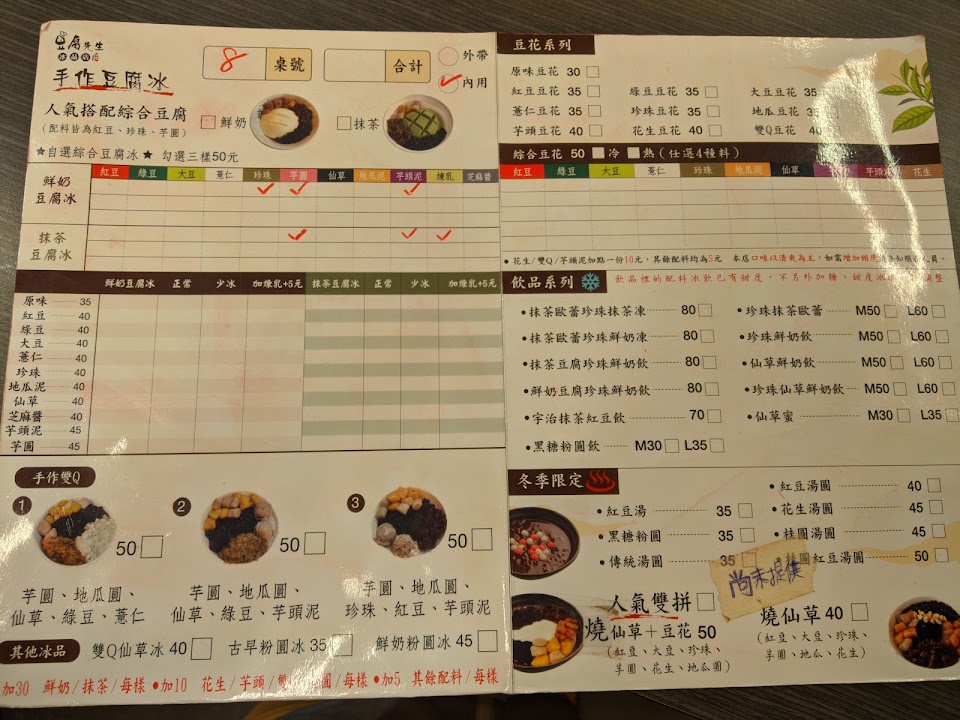 豆腐先生
手作豆腐冰
8 桌號
合計
外帶
✓ 內用
人氣搭配綜合豆腐
(配料皆為紅豆、珍珠、芋圓)
鮮奶
抹茶
★自選綜合豆腐冰★ 勾選三樣50元
紅豆 綠豆 大豆 薏仁 珍珠 芋圓 仙草 地瓜泥 芋頭泥 煉乳 芝麻醬
鮮奶豆腐冰
抹茶豆腐冰
鮮奶豆腐冰 正常 少冰 加煉乳+5元 抹茶豆腐冰 正常 少冰 加煉乳+5元
原味 35
紅豆 40
綠豆 40
大豆 40
薏仁 40
珍珠 40
地瓜泥 40
仙草 40
芝麻醬 40
芋頭泥 45
芋圓 45
手作雙Q
1 50
2 50
3 50
芋圓、地瓜圓、仙草、綠豆、薏仁
芋圓、地瓜圓、仙草、綠豆、芋頭泥
芋圓、地瓜圓、珍珠、紅豆、芋頭泥
其他冰品 雙Q仙草冰 40 古早粉圓冰 35 鮮奶粉圓冰 45
加30 鮮奶/抹茶/每樣 ●加10 花生/芋頭/雙 圓/每樣 ●加5 其餘配料/每樣
豆花系列
原味豆花 30
紅豆豆花 35 綠豆豆花 35 大豆豆花 35
薏仁豆花 35 珍珠豆花 35 地瓜豆花 35
芋頭豆花 40 花生豆花 40 雙Q豆花 40
綜合豆花 50 冷 熱 (任選4種料)
紅豆 綠豆 大豆 薏仁 珍珠 地瓜泥 仙草 芋頭 花生
● 花生/雙Q/芋頭泥加點一份10元,其餘配料均為5元 本店口味以清爽為主,如需增加甜度 服務人員。
飲品系列 飲品裡的配料冰飲已有甜度,不另外加糖、甜度冰 調整
●抹茶歐蕾珍珠抹茶凍 80
●抹茶歐蕾珍珠鮮奶凍 80
●抹茶豆腐珍珠鮮奶飲 80
●鮮奶豆腐珍珠鮮奶飲 80
●宇治抹茶紅豆飲 70
●黑糖粉圓飲 M30 L35
●珍珠抹茶歐蕾 M50 L60
●珍珠鮮奶飲 M50 L60
●仙草鮮奶飲 M50 L60
●珍珠仙草鮮奶飲 M50 L60
●仙草蜜 M30 L35
冬季限定
●紅豆湯 35
●黑糖粉圓 35
●傳統湯圓 35
●紅豆湯圓 40
●花生湯圓 45
●桂圓湯圓 45
桂圓紅豆湯圓 50
尚未提供
人氣雙拼
燒仙草+豆花 50
(紅豆、大豆、珍珠、
芋圓、花生、地瓜圓)
燒仙草 40
(紅豆、大豆、珍珠、
芋圓、地瓜、花生)